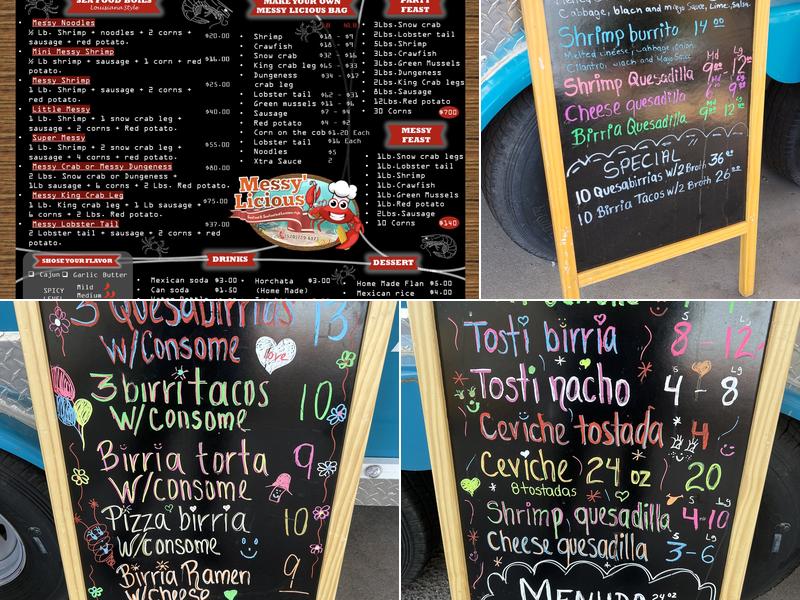 SEAFOOD BOILS
Louisiana Style
Messy Noodles
½ Lb. Shrimp + noodles + 2 corns + $20.00
sausage + red potato.
Mini Messy Shrimp
½ Lb shrimp + sausage + 1 corn + red $16.00
potato.
Messy Shrimp
1 Lb. Shrimp + sausage + 2 corns + $25.00
red potato.
Little Messy
1 Lb. Shrimp + 1 snow crab leg + $40.00
sausage + 2 corns + red potato.
Super Messy
1 Lb. Shrimp + 2 snow crab leg + $55.00
sausage + 4 corns + red potato.
Messy Crab or Messy Dungeness
2 Lb. Snow crab or Dungeness + $80.00
1Lb sausage + 6 corns + 2 Lbs. Red potato.
Messy King Crab Leg
1 Lb. King crab leg + 1 Lb sausage + $75.00
6 corns + 2 Lbs. Red potato.
Messy Lobster Tail
2 Lobster tail + sausage + 2 corn + red $37.00
potato.
MAKE YOUR OWN
MESSY LICIOUS BAG
Shrimp
Crawfish
Snow crab
King crab leg
Dungeness
crab leg
Lobster tail
Green mussels
Sausage
Red potato
Corn on the cob $1.20 Each
Lobster tail
Noodles $5
Xtra Sauce 2
Messy'
Licious
PARTY
FEAST
3Lbs.Snow crab
2Lbs.Lobster tail
5Lbs.Shrimp
5Lbs.Crawfish
3Lbs.Green Mussels
3Lbs.Dungeness
2Lbs.King Crab legs
8Lbs.Sausage
12Lbs.Red potato
30 Corns $700
MESSY
FEAST
1Lb.Snow crab legs
1Lb.Lobster tail
1Lb.Shrimp
1Lb.Crawfish
1Lb.Green Mussels
1Lb.Red potato
2Lbs.Sausage
10 Corns $140
SHOSE YOUR FLAVOR
Cajun Garlic Butter
SPICY Mild
LEVEL Medium
DRINKS
Mexican soda $3.00
Can soda $1.50
Horchata $3.00
(Home Made)
DESSERT
Home Made Flan $5.00
Mexican rice $4.00
Cabbage, black and mayo Sauce, Lime, Salsa.
Shrimp burrito 14 00
Melted cheese, Cabbage, onion,
Cilantro, black and Mayo Sauce
Md Lg
Shrimp Quesadilla
Cheese quesadilla
Birria Quesadilla
SPECIAL
10 Quesabirrias w/2 Broth 36
10 Birria Tacos w/2 Broth 26
3 Quesabirrias 13
W/Consome
love
3 birritacos 10
W/Consome
Birria torta 9
W/Consome
Pizza birria 10
W/consome
Birria Ramen 9
w/cheese
S Lg
Tosti birria 8-12
S Lg
Tosti nacho 4-8
Ceviche tostada 4
Ceviche 24 oz 20
8 tostadas
S Lg
Shrimp quesadilla 4-10
S Lg
Cheese quesadilla 3-6
MENUDO 24 oz